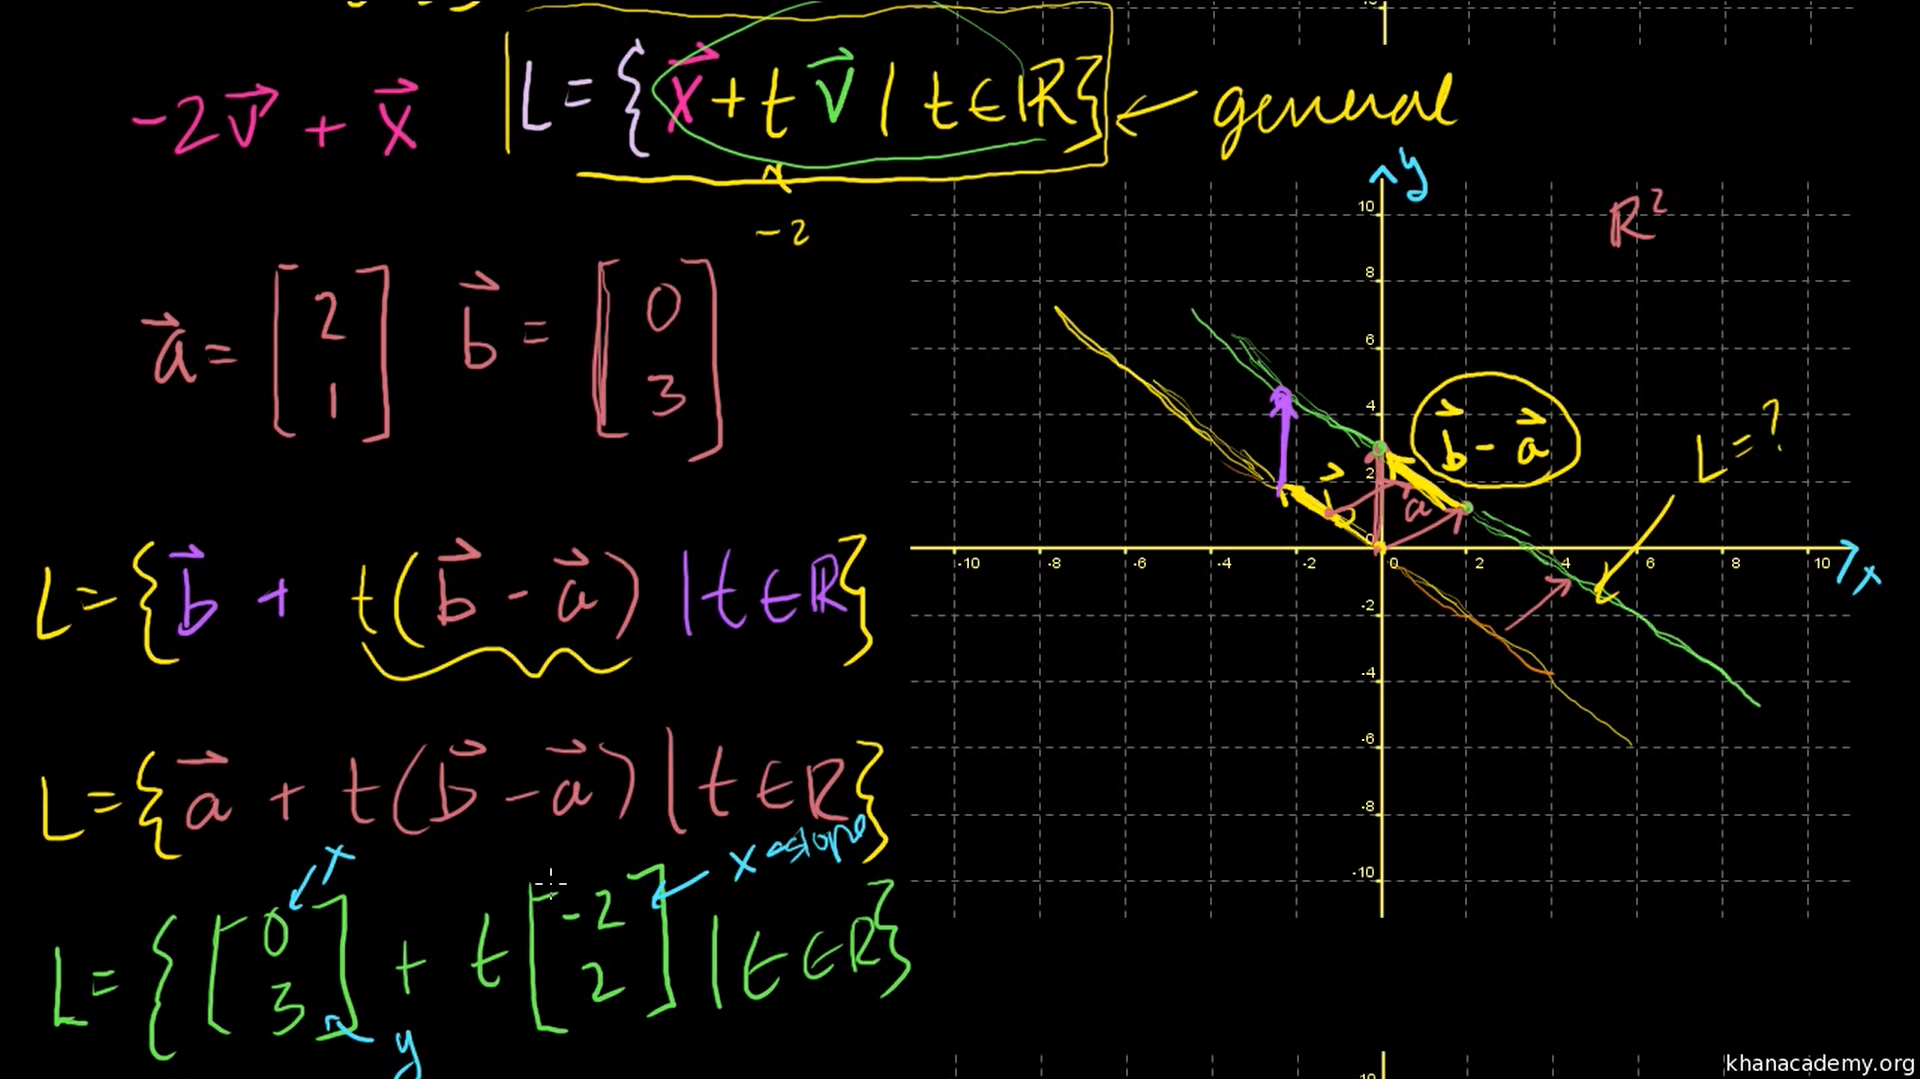 -2v⃗ + x⃗
L = { x⃗ + t v⃗ | t ∈ ℝ } ← general
-2
a⃗ = [2 1] b⃗ = [0 3]
L = { b⃗ + t(b⃗ - a⃗) | t ∈ ℝ }
L = { a⃗ + t(b⃗ - a⃗) | t ∈ ℝ }
x
x slope
L = { [0 3] + t [-2 2] | t ∈ ℝ }
y
y
R²
10
8
6
4
2
0
-2
-4
-6
-8
-10
-10 -8 -6 -4 -2 0 2 4 6 8 10
x
b⃗ - a⃗
L = ?
a
khanacademy.org